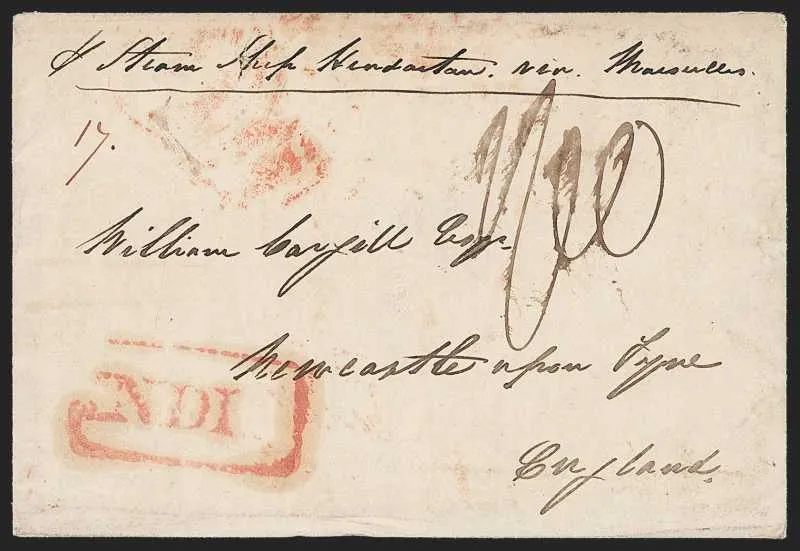 ℘ Steam Ship Hindostan. via. Marseilles.
17.
William Cargill Esqr.
Newcastle upon Tyne
England.
INDI